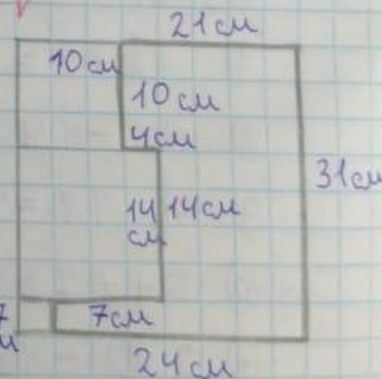 21см
10см
10см
4см
31см
14 14см
см
7 7см
м
24см